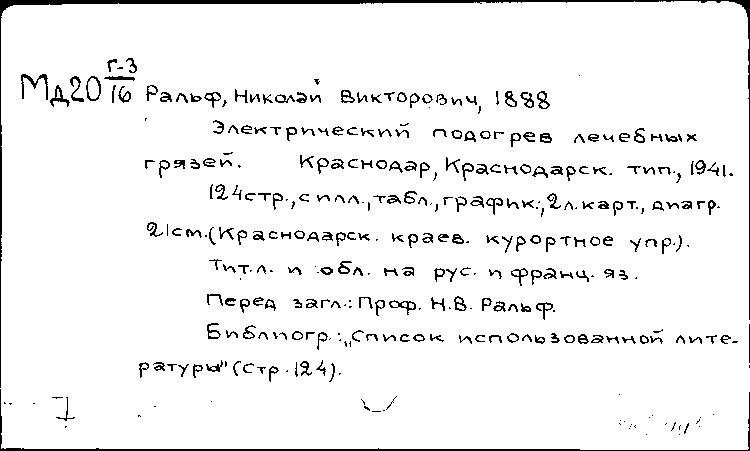 Мд20 Г-3/16 Ральф, Николай Викторович, 1888
Электрический подогрев лечебных
грязей. Краснодар, Краснодарск. тип., 1941.
124стр., с илл., табл., график., 2 л. карт., диагр.
21см. (Краснодарск. краев. курортное упр.).
Тит.л. и обл. на рус. и франц. яз.
Перед загл.: Проф. Н.В. Ральф.
Библиогр.: „Список использованной лите-
ратуры" (стр. 124).
7